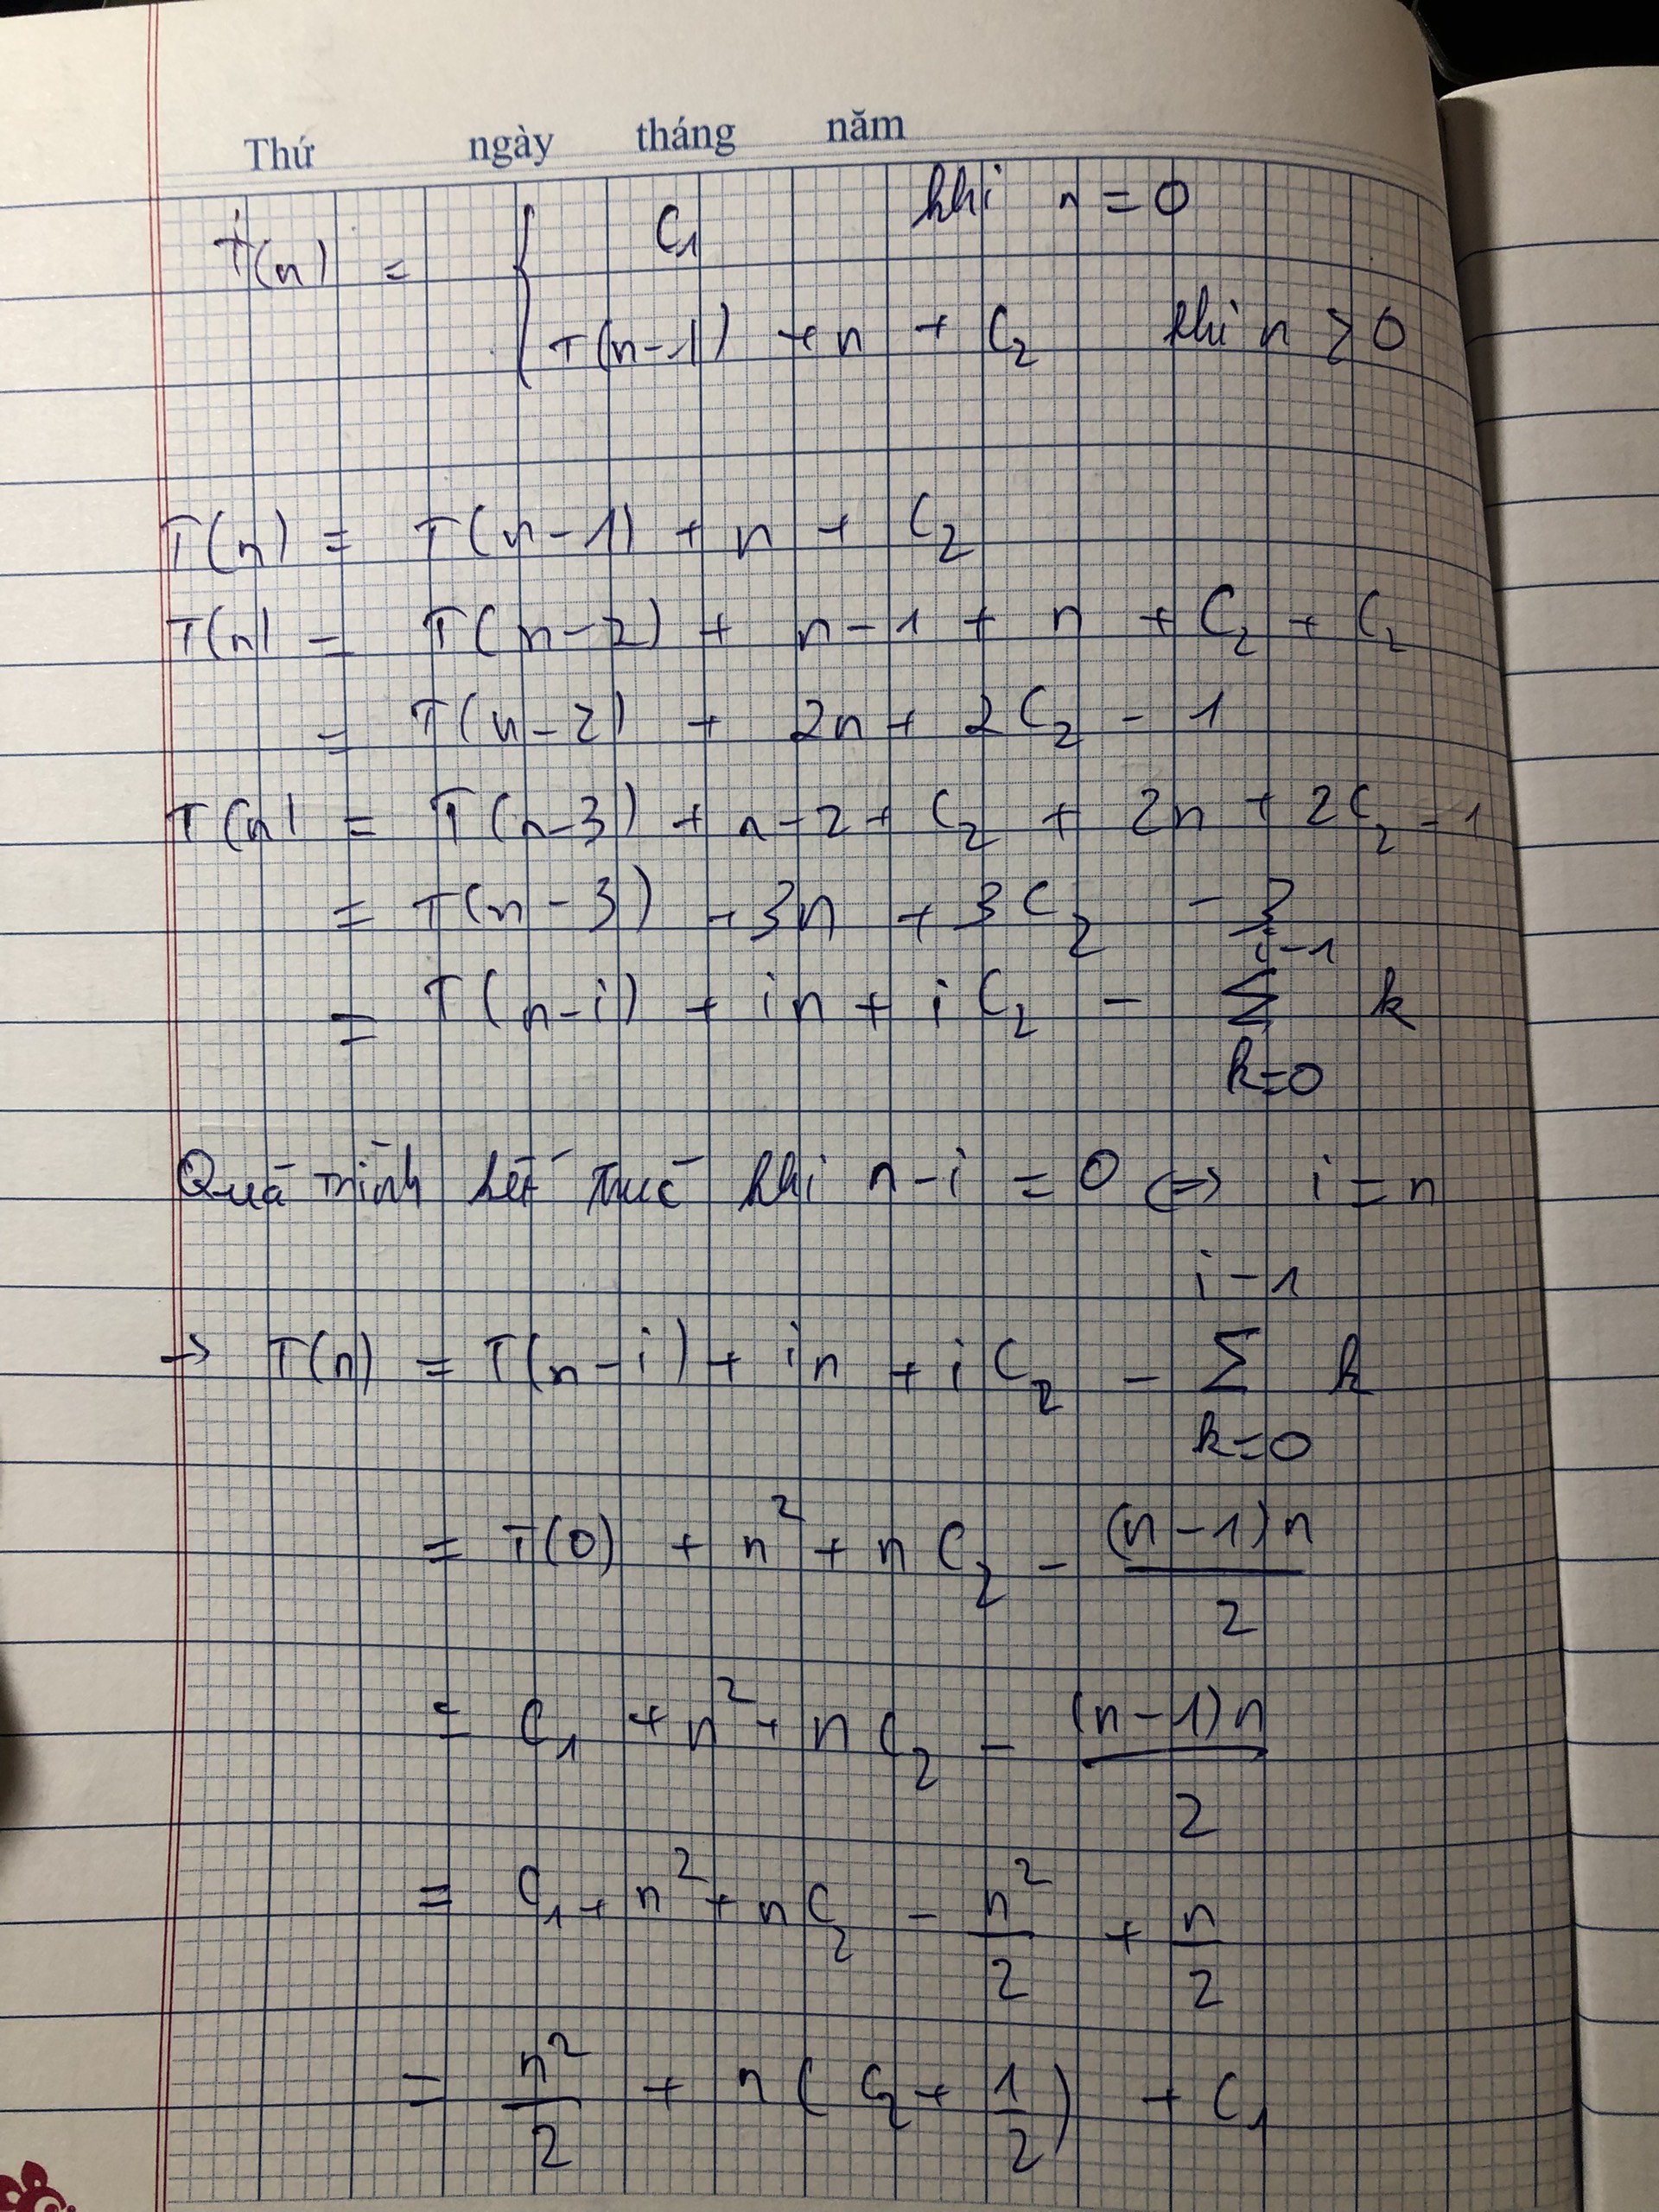 Thứ ngày tháng năm
T(n) = { C₁ khi n = 0
T(n-1) + n + C₂ khi n > 0
T(n) = T(n-1) + n + C₂
T(n) = T(n-2) + n-1 + n + C₂ + C₂
= T(n-2) + 2n + 2C₂ - 1
T(n) = T(n-3) + n-2 + C₂ + 2n + 2C₂ - 1
= T(n-3) + 3n + 3C₂ - 3
= T(n-i) + in + iC₂ - ∑_{k=0}^{i-1} k
Quá trình kết thúc khi n-i = 0 <=> i = n
→ T(n) = T(n-i) + in + iC₂ - ∑_{k=0}^{i-1} k
= T(0) + n² + nC₂ - (n-1)n/2
= C₁ + n² + nC₂ - (n-1)n/2
= C₁ + n² + nC₂ - n²/2 + n/2
= n²/2 + n(C₂ + 1/2) + C₁